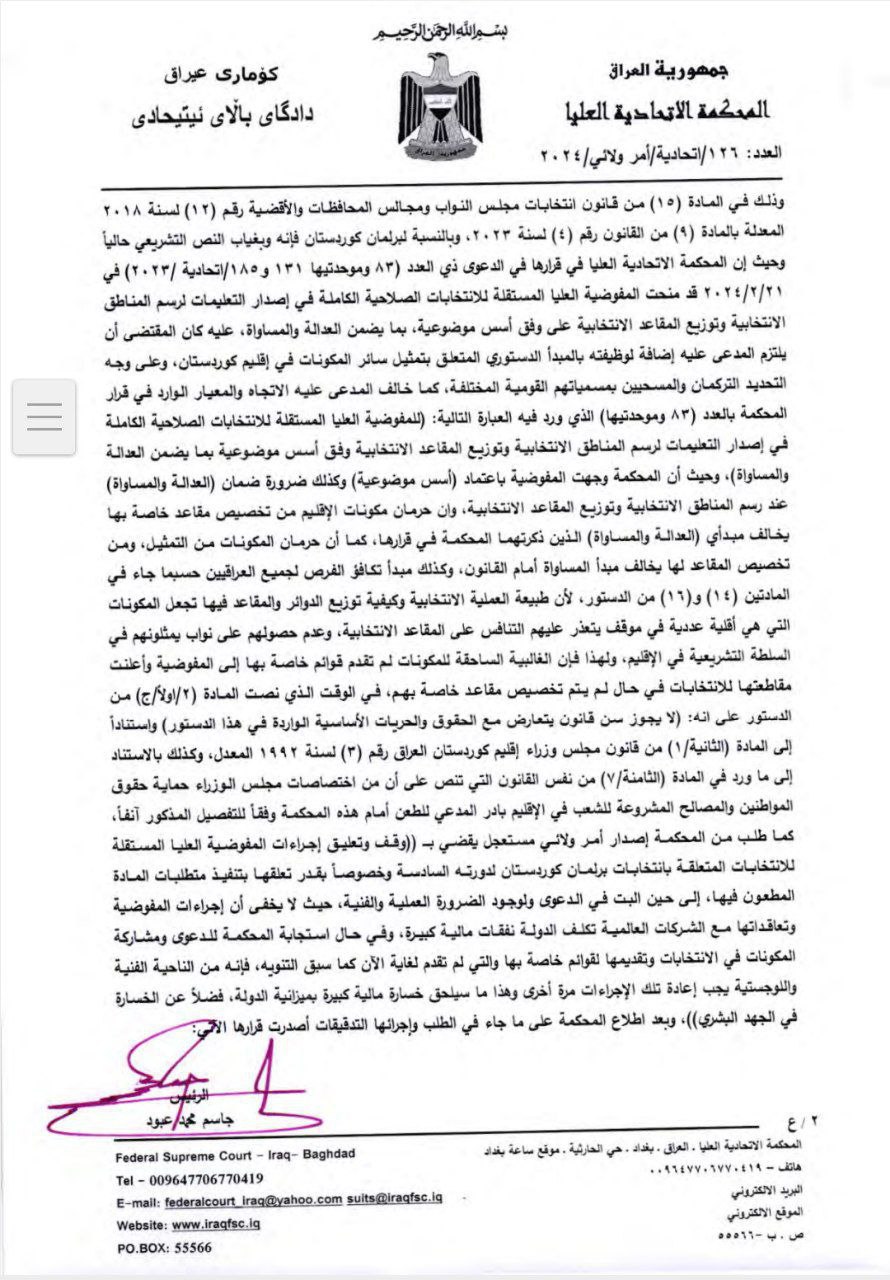 بسم الله الرحمن الرحيم
جمهورية العراق
المحكمة الاتحادية العليا
العدد: ١٢٦/اتحادية/أمر ولائي/٢٠٢٤
كۆماری عیراق
دادگای باڵای ئیتیحادی
جمهورية العراق
وذلك في المادة (١٥) من قانون انتخابات مجلس النواب ومجالس المحافظات والأقضية رقم (١٢) لسنة ٢٠١٨
المعدلة بالمادة (٩) من القانون رقم (٤) لسنة ٢٠٢٣، وبالنسبة لبرلمان كوردستان فإنه وبغياب النص التشريعي حالياً
وحيث إن المحكمة الاتحادية العليا في قرارها في الدعوى ذي العدد (٨٣ وموحدتيها ١٣١ و١٨٥/اتحادية /٢٠٢٣) في
٢٠٢٤/٢/٢١ قد منحت المفوضية العليا المستقلة للانتخابات الصلاحية الكاملة في إصدار التعليمات لرسم المناطق
الانتخابية وتوزيع المقاعد الانتخابية على وفق أسس موضوعية، بما يضمن العدالة والمساواة، عليه كان المقتضى أن
يلتزم المدعى عليه إضافة لوظيفته بالمبدأ الدستوري المتعلق بتمثيل سائر المكونات في إقليم كوردستان، وعلى وجه
التحديد التركمان والمسحيين بمسمياتهم القومية المختلفة، كما خالف المدعى عليه الاتجاه والمعيار الوارد في قرار
المحكمة بالعدد (٨٣ وموحدتيها) الذي ورد فيه العبارة التالية: (للمفوضية العليا المستقلة للانتخابات الصلاحية الكاملة
في إصدار التعليمات لرسم المناطق الانتخابية وتوزيع المقاعد الانتخابية وفق أسس موضوعية بما يضمن العدالة
والمساواة)، وحيث أن المحكمة وجهت المفوضية باعتماد (أسس موضوعية) وكذلك ضرورة ضمان (العدالة والمساواة)
عند رسم المناطق الانتخابية وتوزيع المقاعد الانتخابية، وان حرمان مكونات الإقليم من تخصيص مقاعد خاصة بها
يخالف مبدأي (العدالة والمساواة) الذين ذكرتهما المحكمة في قرارها، كما أن حرمان المكونات من التمثيل، ومن
تخصيص المقاعد لها يخالف مبدأ المساواة أمام القانون، وكذلك مبدأ تكافؤ الفرص لجميع العراقيين حسبما جاء في
المادتين (١٤) و(١٦) من الدستور، لأن طبيعة العملية الانتخابية وكيفية توزيع الدوائر والمقاعد فيها تجعل المكونات
التي هي أقلية عددية في موقف يتعذر عليهم التنافس على المقاعد الانتخابية، وعدم حصولهم على نواب يمثلونهم في
السلطة التشريعية في الإقليم، ولهذا فإن الغالبية الساحقة للمكونات لم تقدم قوائم خاصة بها إلى المفوضية وأعلنت
مقاطعتها للانتخابات في حال لم يتم تخصيص مقاعد خاصة بهم، في الوقت الذي نصت المادة (٢/اولاً/ج) من
الدستور على انه: (لا يجوز سن قانون يتعارض مع الحقوق والحريات الأساسية الواردة في هذا الدستور) واستناداً
إلى المادة (الثانية/١) من قانون مجلس وزراء إقليم كوردستان العراق رقم (٣) لسنة ١٩٩٢ المعدل، وكذلك بالاستناد
إلى ما ورد في المادة (الثامنة/٧) من نفس القانون التي تنص على أن من اختصاصات مجلس الوزراء حماية حقوق
المواطنين والمصالح المشروعة للشعب في الإقليم بادر المدعي للطعن أمام هذه المحكمة وفقاً للتفصيل المذكور آنفاً،
كما طلب من المحكمة إصدار أمر ولائي مستعجل يقضي بـ ((وقف وتعليق إجراءات المفوضية العليا المستقلة
للانتخابات المتعلقة بانتخابات برلمان كوردستان لدورته السادسة وخصوصاً بقدر تعلقها بتنفيذ متطلبات المادة
المطعون فيها، إلى حين البت في الدعوى ولوجود الضرورة العملية والفنية، حيث لا يخفى أن إجراءات المفوضية
وتعاقداتها مع الشركات العالمية تكلف الدولة نفقات مالية كبيرة، وفي حال استجابة المحكمة للدعوى ومشاركة
المكونات في الانتخابات وتقديمها لقوائم خاصة بها والتي لم تقدم لغاية الآن كما سبق التنويه، فإنه من الناحية الفنية
واللوجستية يجب إعادة تلك الإجراءات مرة أخرى وهذا ما سيلحق خسارة مالية كبيرة بميزانية الدولة، فضلاً عن الخسارة
في الجهد البشري))، وبعد اطلاع المحكمة على ما جاء في الطلب وإجرائها التدقيقات أصدرت قرارها الآتي:
الرئيس
جاسم محمد عبود
٢ / ع
المحكمة الاتحادية العليا . العراق . بغداد . حي الحارثية . موقع ساعة بغداد
هاتف – ٠٠٩٦٤٧٧٠٦٧٧٠٤١٩
البريد الالكتروني
الموقع الالكتروني
ص . ب –٥٥٥٦٦
Federal Supreme Court – Iraq– Baghdad
Tel – 009647706770419
E–mail: federalcourt_iraq@yahoo.com suits@iraqfsc.iq
Website: www.iraqfsc.iq
PO.BOX: 55566